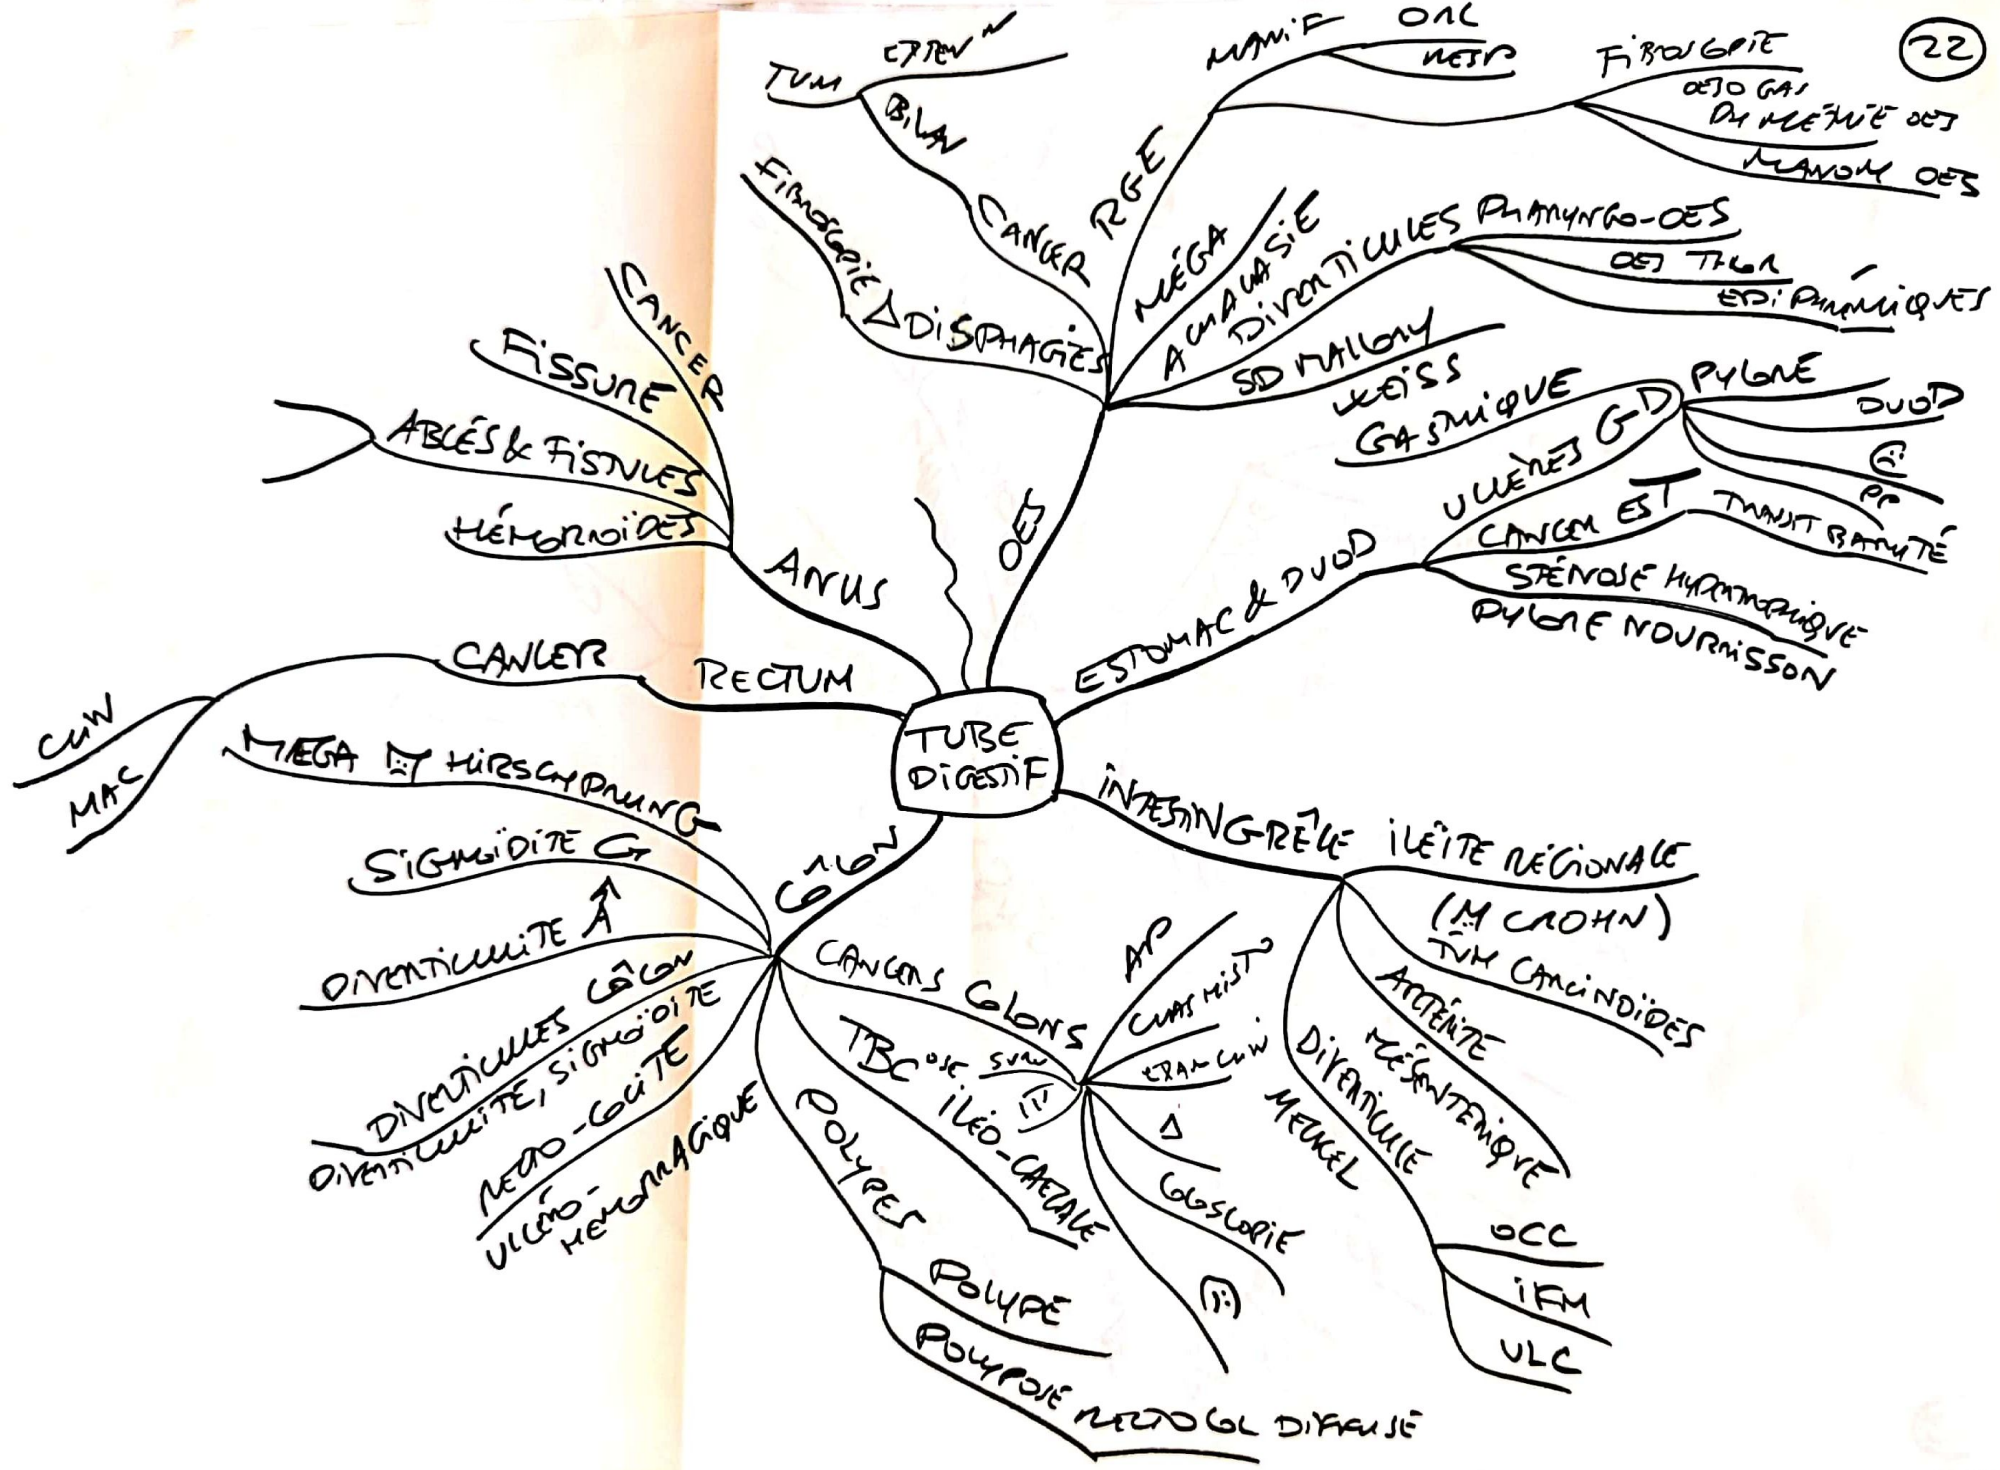 22
TUBE
DIGESTIF
OES
RGE
MANIF
ORL
RESP
FIBROSCOPIE
OESO GAS
PH MÉTRIE OES
MANOM OES
MÉGA
ACHALASIE
DIVERTICULES
PHARYNGO-OES
OES THOR
EPIPHRÉNIQUES
SD MALLORY
WEISS
CANCER
BILAN
TUM
EXTEN N
Δ DISPHAGIES
FIBROSCOPIE
ESTOMAC & DUOD
ULCÈRES GD
GASTRIQUE
PYLORE
DUOD
PP
CANCER EST
TRANSIT BARYTÉ
STÉNOSE HYPERTROPHIQUE
PYLORE NOURRISSON
INTESTIN GRÊLE
ILÉITE RÉGIONALE
(M CROHN)
TUM CARCINOÏDES
ARTÉRITE
MÉSENTERIQUE
DIVERTICULE
MECKEL
OCC
IFM
ULC
CÔLON
CANCERS COLONS
AP
CLAS HISTO
EXAM CLIN
Δ
COLOSCOPIE
SURV
TBC OSE
ILÉO-CAECALE
POLYPES
POLYPE
POLYPOSE RECTOCOL DIFFUSE
RECTO-COLITE
ULCÉRO-
HEMORRAGIQUE
DIVERTICULES CÔLON
DIVERTICULITE, SIGMOÏDITE
DIVERTICULITE
SIGMOÏDITE G
MEGA M HIRSCHPRUNG
RECTUM
CANCER
CLIN
MAC
ANUS
HÉMORROÏDES
ABCÉS & FISTULES
FISSURE
CANCER